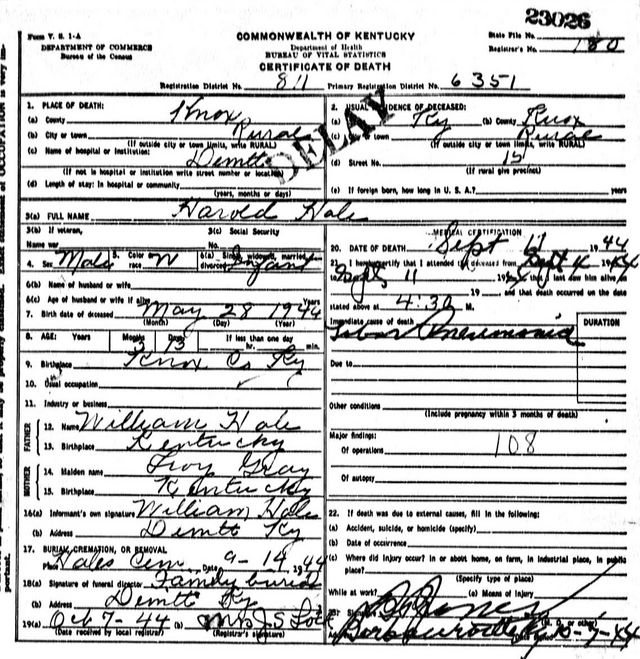 23026
Form V. S. 1-A
DEPARTMENT OF COMMERCE
Bureau of the Census
COMMONWEALTH OF KENTUCKY
Department of Health
BUREAU OF VITAL STATISTICS
CERTIFICATE OF DEATH
State File No.
Registrar's No. 180
Registration District No. 811 Primary Registration District No. 6351
DELAY
1. PLACE OF DEATH:
(a) County Knox
(b) City or town Rural
(If outside city or town limits, write RURAL)
(c) Name of hospital or institution:
Demtt
(If not in hospital or institution write street number or location)
(d) Length of stay: In hospital or community
(years, months or days)
2. USUAL RESIDENCE OF DECEASED:
(a) Ky (b) County Knox
(c) or town Rural
(If outside city or town limits, write RURAL)
(d) Street No. 15
(If rural give precinct)
(e) If foreign born, how long in U. S. A.? years
3(a) FULL NAME Harold Hale
3(b) If veteran,
Name war
3(c) Social Security
No.
4. Sex Male 5. Color or race W 6(a) Single, widowed, married, divorced Infant
6(b) Name of husband or wife
6(c) Age of husband or wife if alive Years
7. Birth date of deceased May 28 1944
(Month) (Day) (Year)
8. AGE: Years Months 3 Days 13 If less than one day
hr. min.
9. Birthplace Knox Co Ky
10. Usual occupation
11. Industry or business
FATHER
12. Name William Hale
13. Birthplace Kentucky
MOTHER
14. Maiden name Troy Gray
15. Birthplace Kentucky
16(a) Informant's own signature William Hale
(b) Address Demtt Ky
17. BURIAL, CREMATION, OR REMOVAL
Place Hales Cem Date 9-14 1944
18(a) Signature of funeral director Family burial
(b) Address Demtt Ky
19(a) Oct 7-44 (b) Mrs J S Lock
(Date received by local registrar) (Registrar's signature)
MEDICAL CERTIFICATION
20. DATE OF DEATH Sept 11 1944
21. I hereby certify that I attended the deceased from Sept 4 1944
to Sept 11 1944 that I last saw him alive on
19 and that death occurred on the date
stated above at 4:30 M.
Immediate cause of death
Lobar Pneumonia
DURATION
Due to
Other conditions
(Include pregnancy within 3 months of death)
Major findings:
Of operations 108
Of autopsy
22. If death was due to external causes, fill in the following:
(a) Accident, suicide, or homicide (specify)
(b) Date of occurrence
(c) Where did injury occur? In or about home, on farm, in industrial place, in public
place?
(Specify type of place)
While at work? (e) Means of injury
23. (M. D. or other)
Barbourville Ky 10-7-44